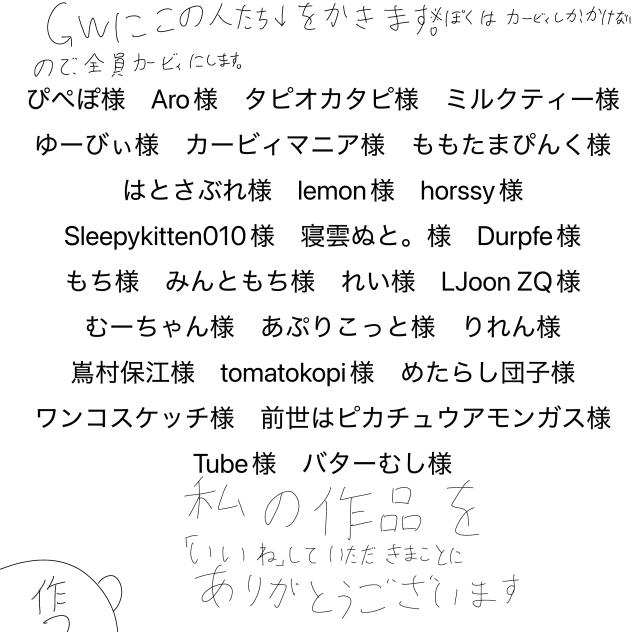 GWにこの人たち↓をかきます。※ぼくは カービィしかかけない
ので、全員カービィにします。
ぴぺぽ様 Aro様 タピオカタピ様 ミルクティー様
ゆーびぃ様 カービィマニア様 ももたまぴんく様
はとさぶれ様 lemon様 horssy様
Sleepykitten010様 寝雲ぬと。様 Durpfe様
もち様 みんともち様 れい様 LJoon ZQ様
むーちゃん様 あぷりこっと様 りれん様
嶌村保江様 tomatokopi様 めたらし団子様
ワンコスケッチ様 前世はピカチュウアモンガス様
Tube様 バターむし様
私の作品を
「いいね」していただきまことに
ありがとうございます
作